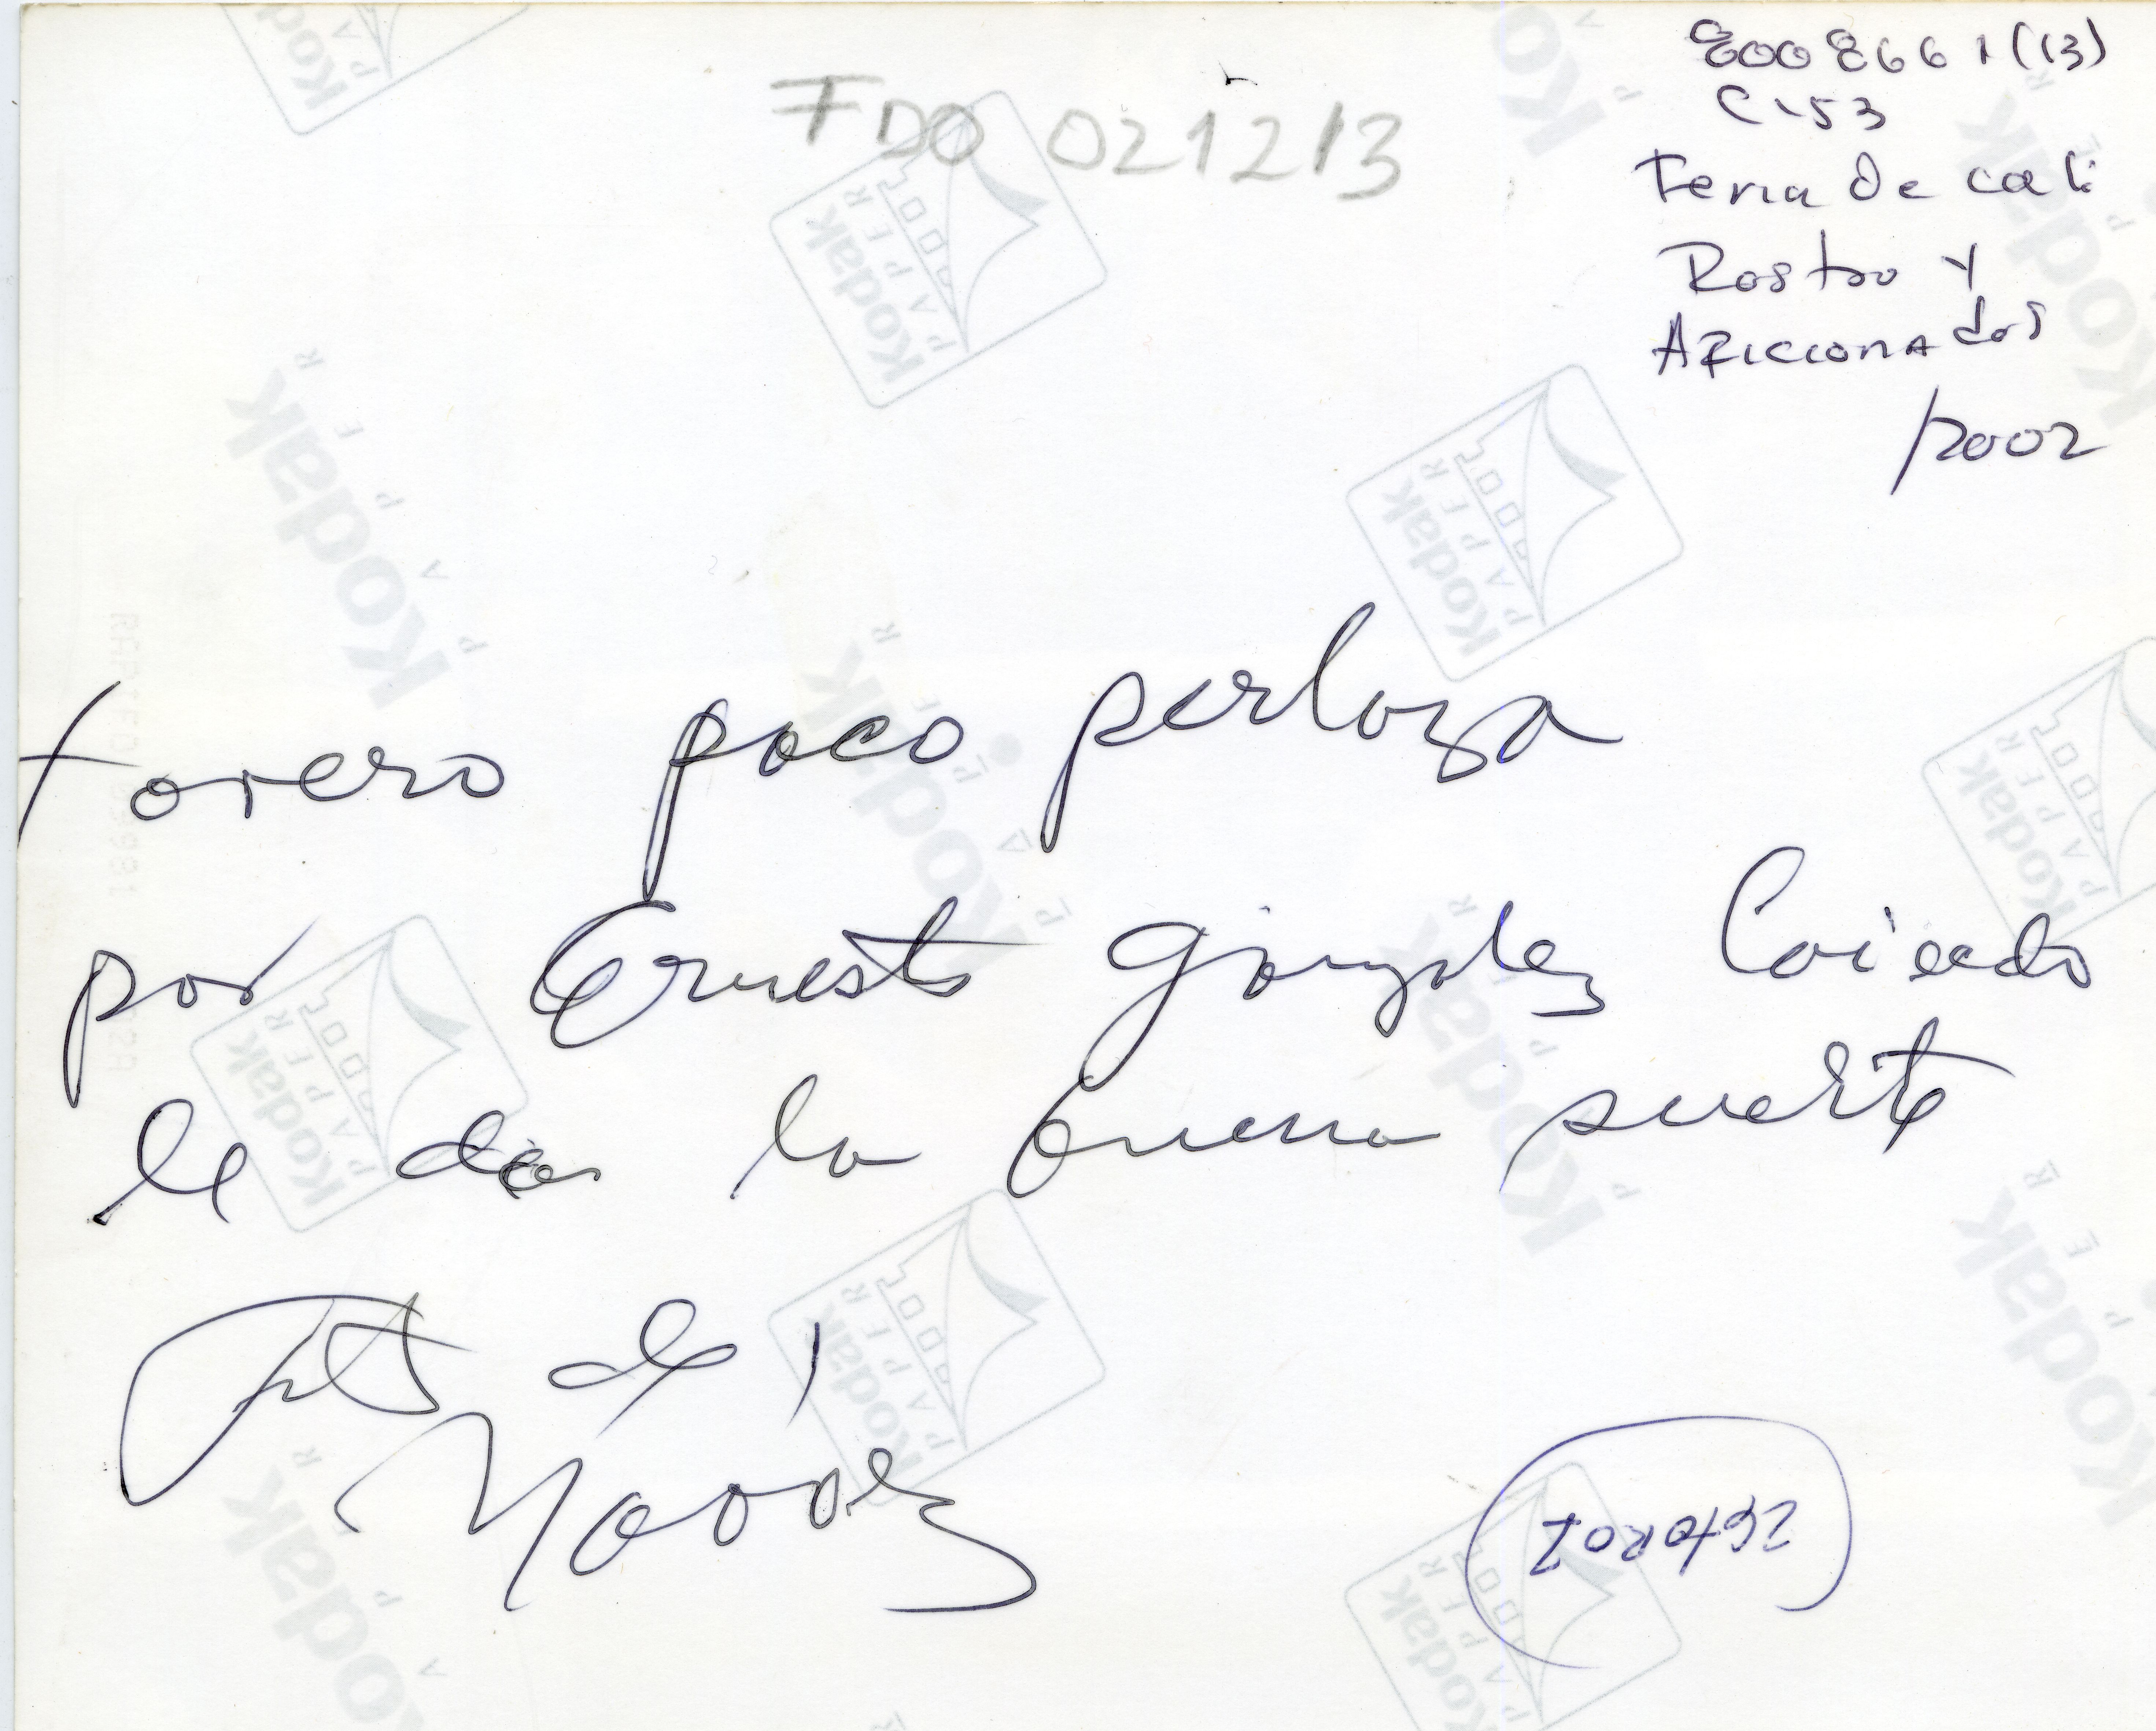 FDO 021213
8008661 (13)
C-53
Feria De cali
Rostro y
Aficionados
/2002
torero paco perlaza
por Ernesto gonzalez Caicedo
le da la buena suerte
de
Kodak
PAPER